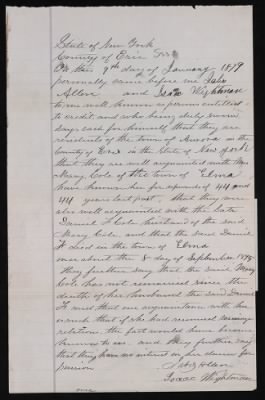 State of New York
County of Erie SS
On this 9th day of January 1879
personally came before me
Allen and Isaac Wightman
to me well known as persons entitled
to credit, and who being duly sworn
says each for himself that they are
residents of the town of in the
County of Erie in the State of New York
that they are well acquainted with Mrs
Mary Cole of the town of Elma
have known her for upwards of 44 and
44 years last past, that they were
also well acquainted with the late
Daniel F Cole husband of the said
Mary Cole, and that the said Daniel
F died in the town of Elma
on or about the 8 day of September 1878
they further say that the said Mary
Cole has not remarried since the
death of her husband the said Daniel
F and that our acquaintance with her
is such that if she had
the fact would have become
known to us. and they further say
that they have no interest in her claim for
pension
Allen
Isaac Wightman